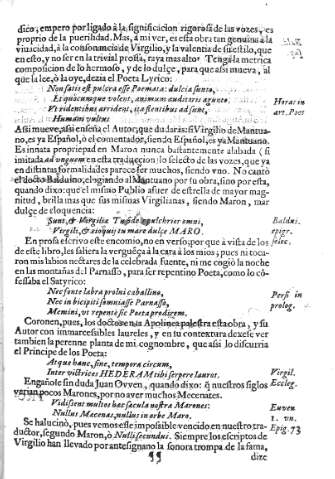 dico, empero por ligado à la significacion rigorosa de las vozes, es
proprio de la puerilidad. Mas, à mi ver, es esta obra tan genuina à la
vivacidad, à la consonancia de Virgilio, y la valentia de su estilo, que
en esto, y no ser en la trivial prosa, raya mas alto. Tenga la metrica
composicion de lo hermoso, y de lo dulçe, para que assi mueva, al
que la lee, ò la oye, dezia el Poeta Lyrico:
Non satis est pulcra esse Poemata: dulcia sunto,
Et quòcumque volent, animum auditoris agunto.
Vt ridentibus arrident, ita flentibus adsunt,
Humani vultus
Horat. in
art. Poet
Assi mueve, assi enseña el Autor, que dudaràs: si Virgilio de Mantuano,
es ya Español, ò el comentador, siendo Español, es ya Mantuano.
Es innata propriedad en Maron nunca bastantemente alabada (si
imitada ad unguem en esta traduccion) lo selecto de las vozes, que ya
en distantas formalidades parece ser muchos, siendo uno. No cantò
el docto Balduino, elogiando al Mantuano por su obra, sino por esta,
quando dixo: que el mismo Publio assuer de estrella de mayor magnitud,
brilla mas que sus mismas Virgilianas, siendo Maron, mar
dulçe de eloquencia:
Sunt, &
Virgili, & eloquij tu mare dulce MARO.
Balduï.
epigr.
selec.
En prosa escrivo este encomio, no en verso, por que à vista de los
de este libro, les saliera la verguēça à la cara à los mios; pues ni tocaron
mis labios nectares de la celebrada fuente, ni me cogiò la noche
en las montañas del Parnasso, para ser repentino Poeta, como lo cōfessaba
el Satyrico:
Nec fonte labra prolui caballino,
Nec in bicipiti somniasse Parnasso,
Memini, vt repentè sic Poeta prodirem.
Persi in
prolog.
Coronen, pues, los doctos en la Apolinea palestra esta obra, y su
Autor con immarcessibles laureles, y en tu contextura dexese ver
tambien la perenne planta de mi cognomore, que assi lo discurria
el Principe de los Poeta:
Atque hanc, sine, tempora circum,
Inter victrices HEDERAM tibi serpere lauros.
Virgil.
Eccleg.
Engañose sin duda Juan Ovven, quando dixo: q̄ nuestros siglos
verian pocos Marones, por no aver muchos Mecenates.
Vidissent multos haec sæcula nostra Marones:
Nullus Mæcenas, nullus in orbe Maro.
Euuen
l. vn.
Epig. 73
Se halucinò, pues vemos este impossible vencido en nuestro traductor,
segundo Maron, ò Nulli secundus. Siempre los escriptos de
Virgilio han llevado por antesignano la sonora trompa de la fama,
¶¶
dize